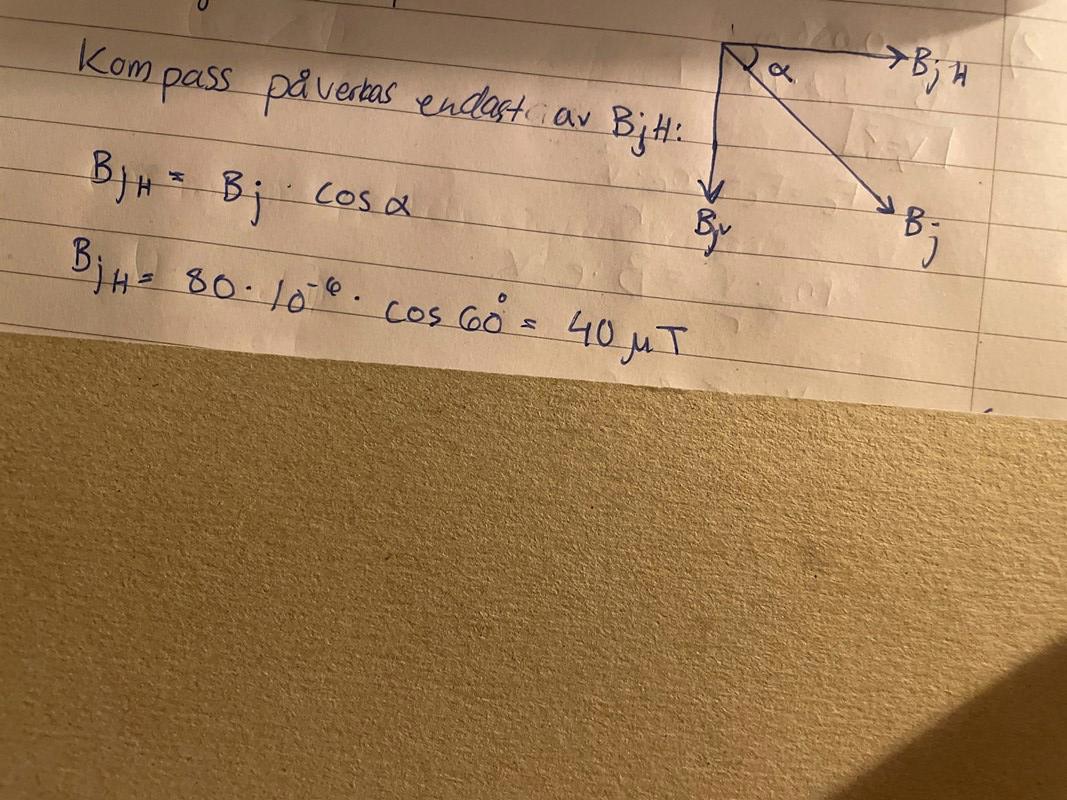 Kompass påverkas endast av BjH:
BjH = Bj · cos α
BjH = 80 · 10⁻⁶ · cos 60° = 40 μT
α
BjH
Bjv
Bj